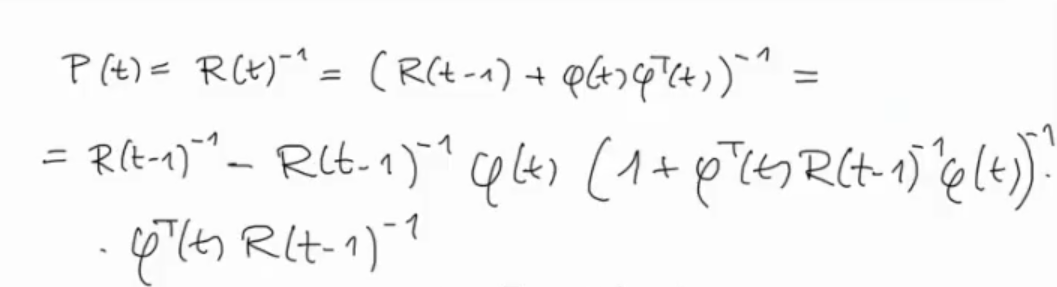 P(t) = R(t)⁻¹ = (R(t-1) + φ(t)φᵀ(t))⁻¹ =
= R(t-1)⁻¹ - R(t-1)⁻¹ φ(t) (1 + φᵀ(t) R(t-1)⁻¹ φ(t))⁻¹ ·
· φᵀ(t) R(t-1)⁻¹